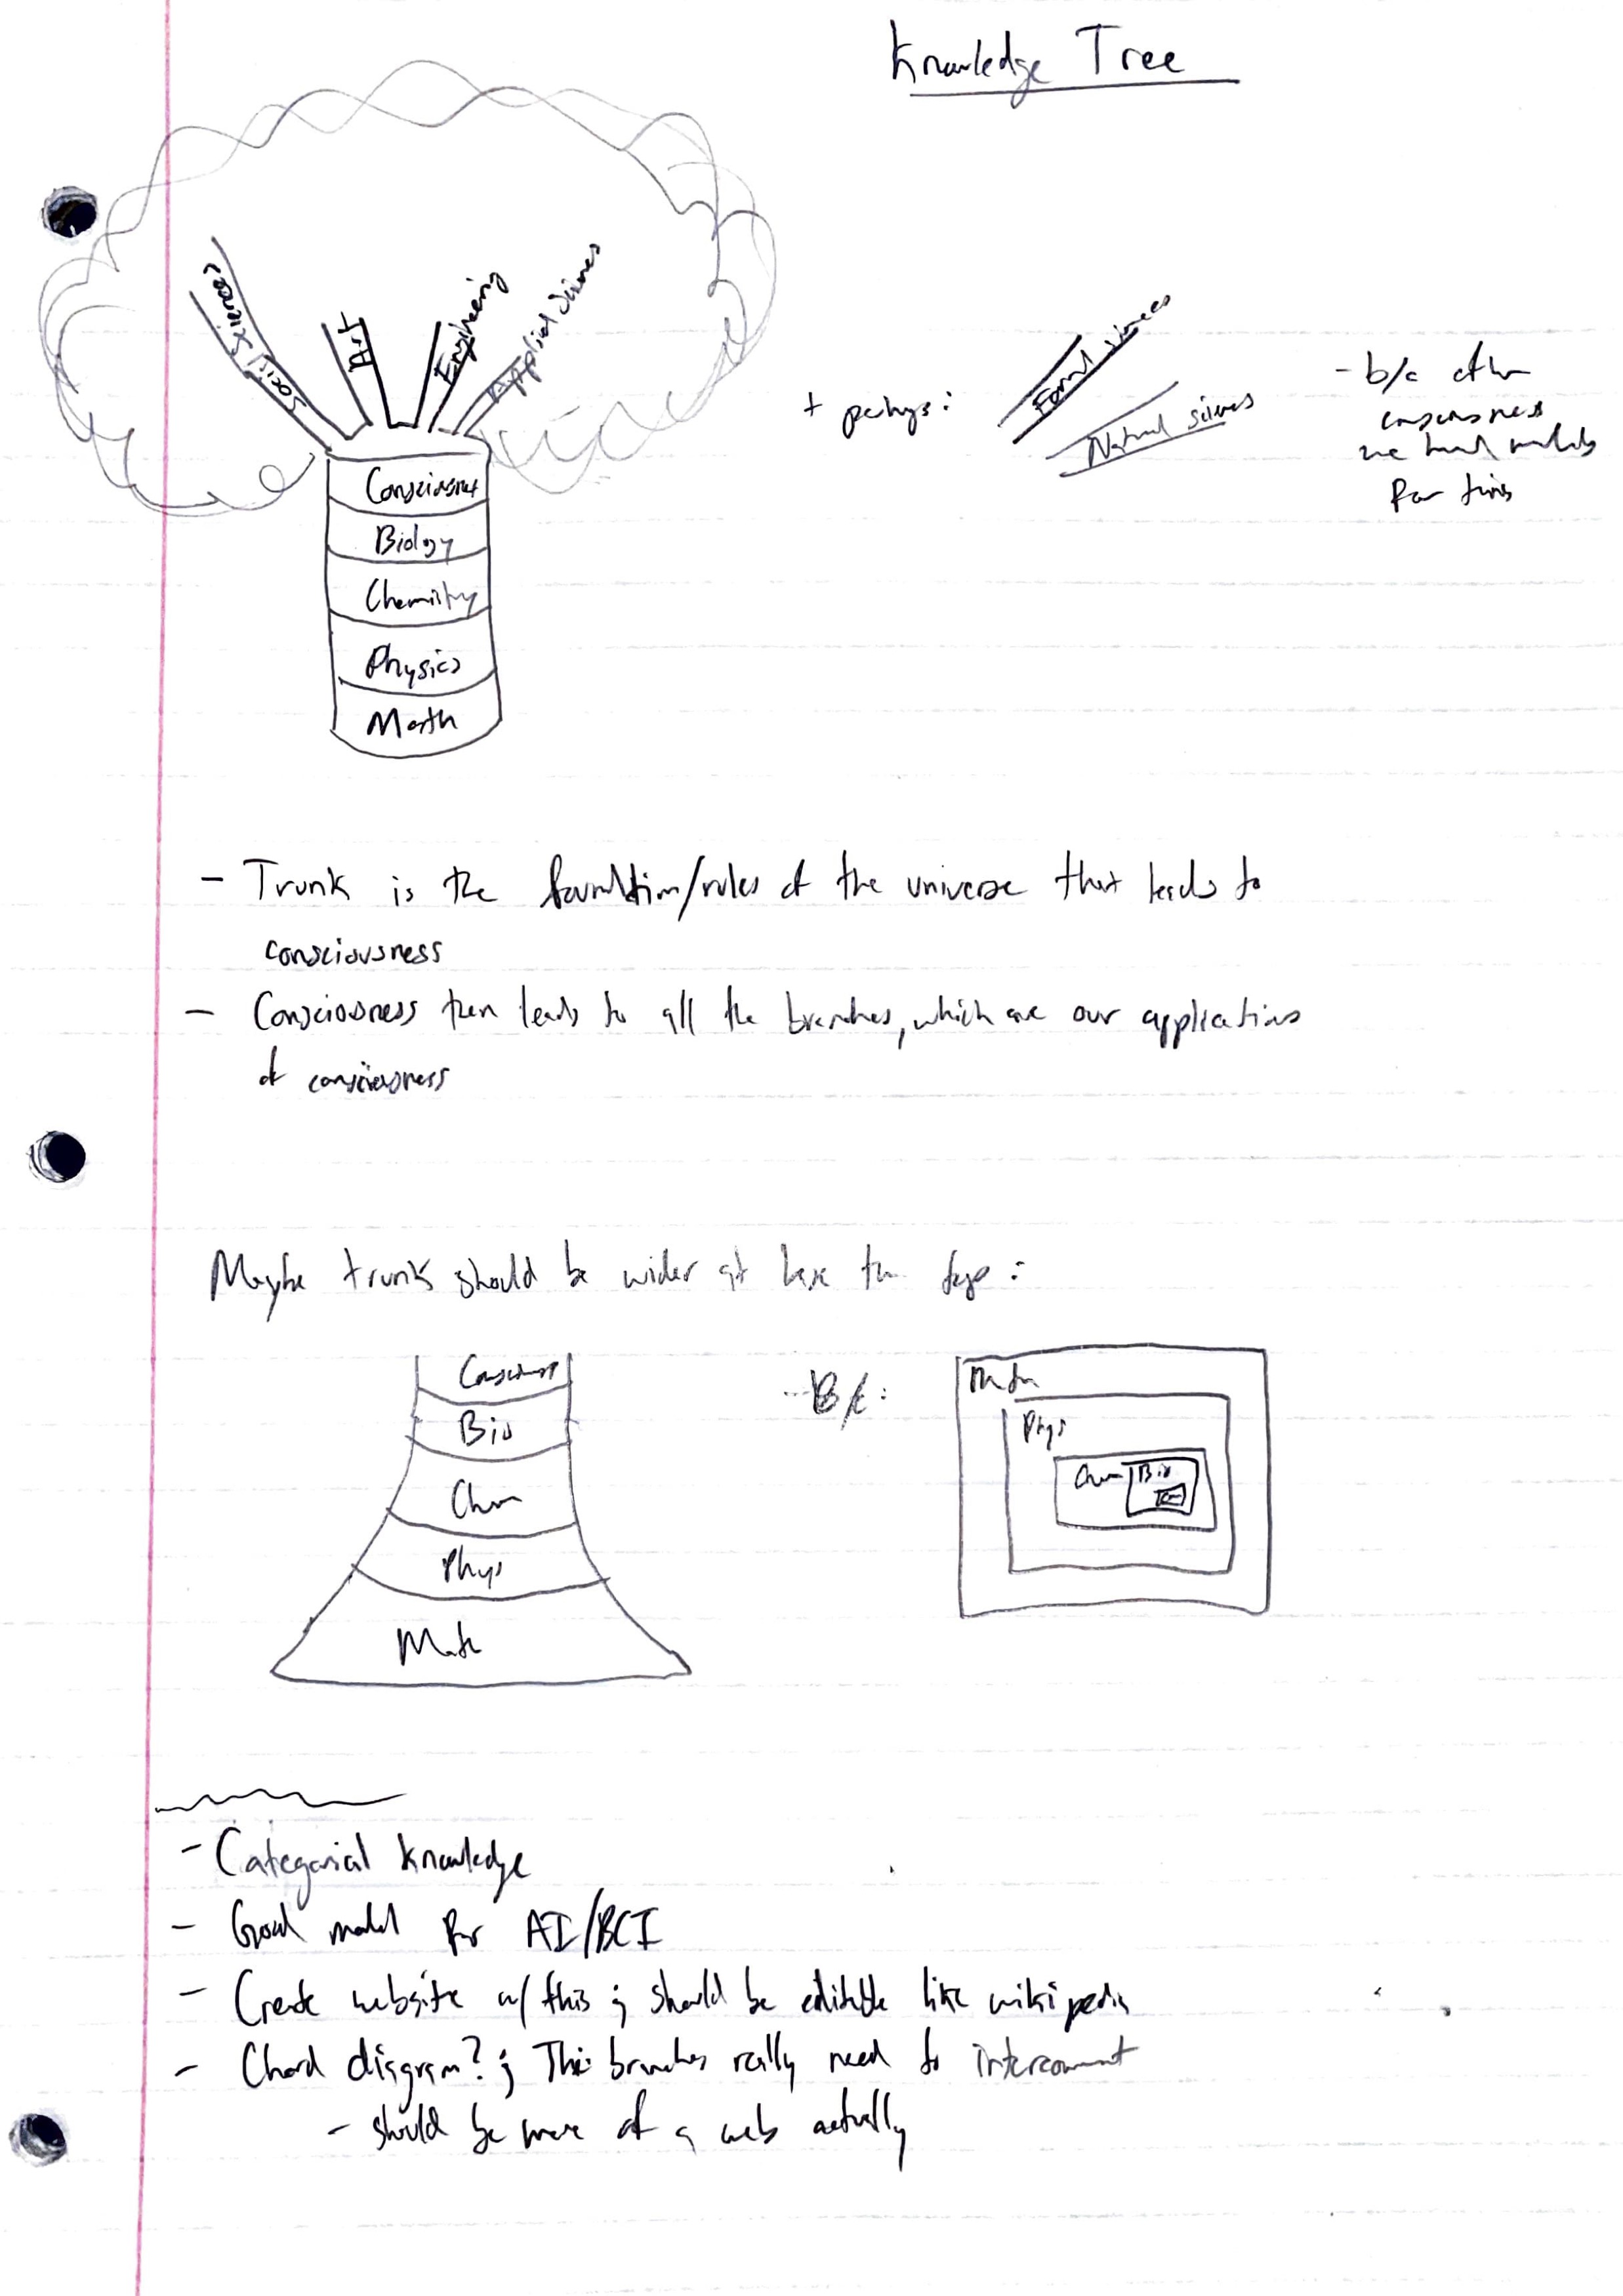 Knowledge Tree
Social Sciences
Art
Engineering
Applied Sciences
Consciousness
Biology
Chemistry
Physics
Math
+ perhaps:
Formal sciences
Natural sciences
- b/c after
consciousness
we found models
for this
- Trunk is the foundation/rules of the universe that leads to
consciousness
- Consciousness then leads to all the branches, which are our applications
of consciousness
Maybe trunk should be wider at base tho :
Consciousness
Bio
Chem
Phys
Math
- B/c:
Math
Phys
Chem
Bio
- Categorical knowledge
- Good model for AI/BCI
- Create website w/ this ; should be editable like wikipedia
- Chord diagram? ; The branches really need to interconnect
- should be more of a web actually